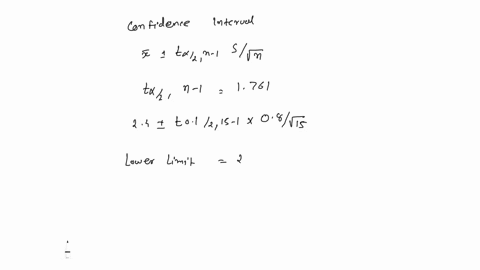 Confidence Interval
x̄ ± tα/2, n-1 S/√n
tα/2, n-1 = 1.761
2.4 ± t0.1/2, 15-1 × 0.8/√15
Lower Limit = 2